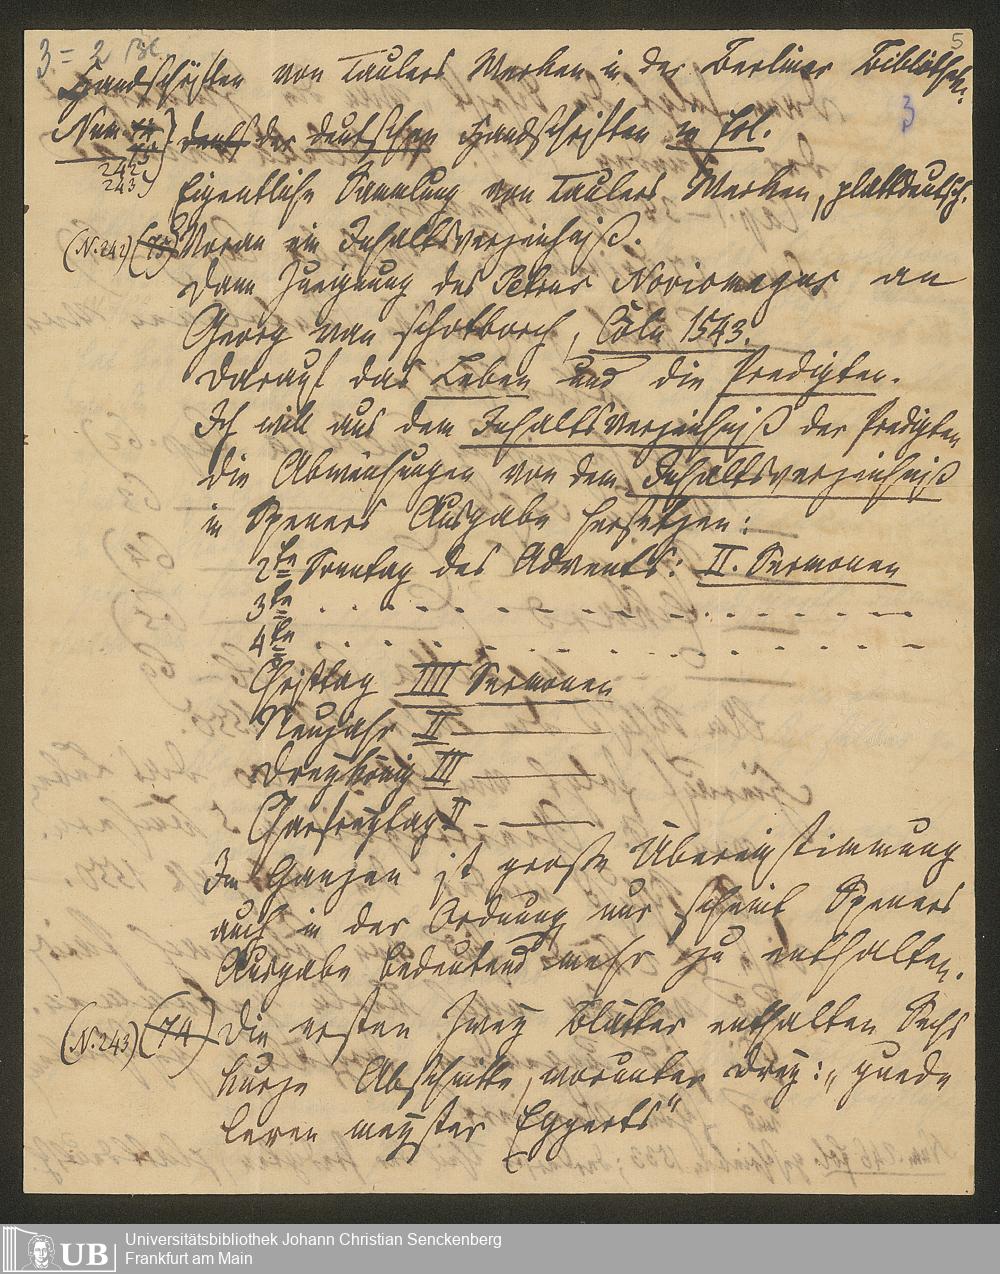 3 = 2 Bl.
5
Handschriften von Taulers Werken in der Berliner Biblioth.
3
Num. 74 75 242. 243. deutsch der deutschen Handschriften in fol.
Eigentliche Sammlung von Taulers Werken, plattdeutsch.
(N. 242) (75) Voran ein Inhaltsverzeichniß.
Dann Zueignung des Petrus Noviomagus an
Georg van Schotborch, Cöln 1543.
Darauf das Leben und die Predigten.
Ich will aus dem Inhaltsverzeichniß der Predigten
die Abweichungen von dem Inhaltsverzeichniß
in Speners Ausgabe hersetzen:
2ten Sonntag des Advents: II. Sermonen
3ten . . . . . . . . . .
4ten . . . . . . . . . .
Christtag IIII Sermonen
Neujahr II ———
Dreykönig III ———
Charfreytag II ———
Im Ganzen ist große Übereinstimmung
auch in der Ordnung, nur scheint Speners
Ausgabe bedeutend mehr zu enthalten.
(N. 243) (74) Die ersten zwey Blätter enthalten Sechs
kurze Abschnitte, worunter drey: „guede
leren meyster Eggerts“
UB Universitätsbibliothek Johann Christian Senckenberg
Frankfurt am Main